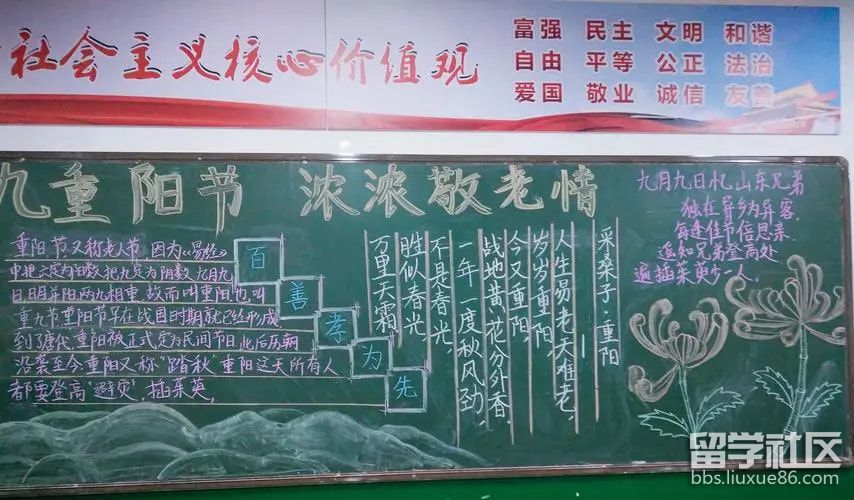 社会主义核心价值观
富强 民主 文明 和谐
自由 平等 公正 法治
爱国 敬业 诚信 友善
九重阳节 浓浓敬老情
重阳节又称老人节,因为《易经》
中把六定为阳数把九定为阴数九月九
日,日月并阳两九相重,故而叫重阳也叫
重九节重阳节早在战国时期就已经形成
到了唐代重阳被正式定为民间节日此后历朝
沿袭至今重阳又称“踏秋”重阳这天所有人
都要登高“避灾”,插茱萸,
百
善
孝
为
先
采桑子·重阳
人生易老天难老,
岁岁重阳,
今又重阳,
战地黄花分外香.
一年一度秋风劲,
不是春光,
胜似春光,
万里天霜.
九月九日忆山东兄弟
独在异乡为异客.
每逢佳节倍思亲
遥知兄弟登高处
遍插茱萸少一人.
留学社区
bbs.liuxue86.com